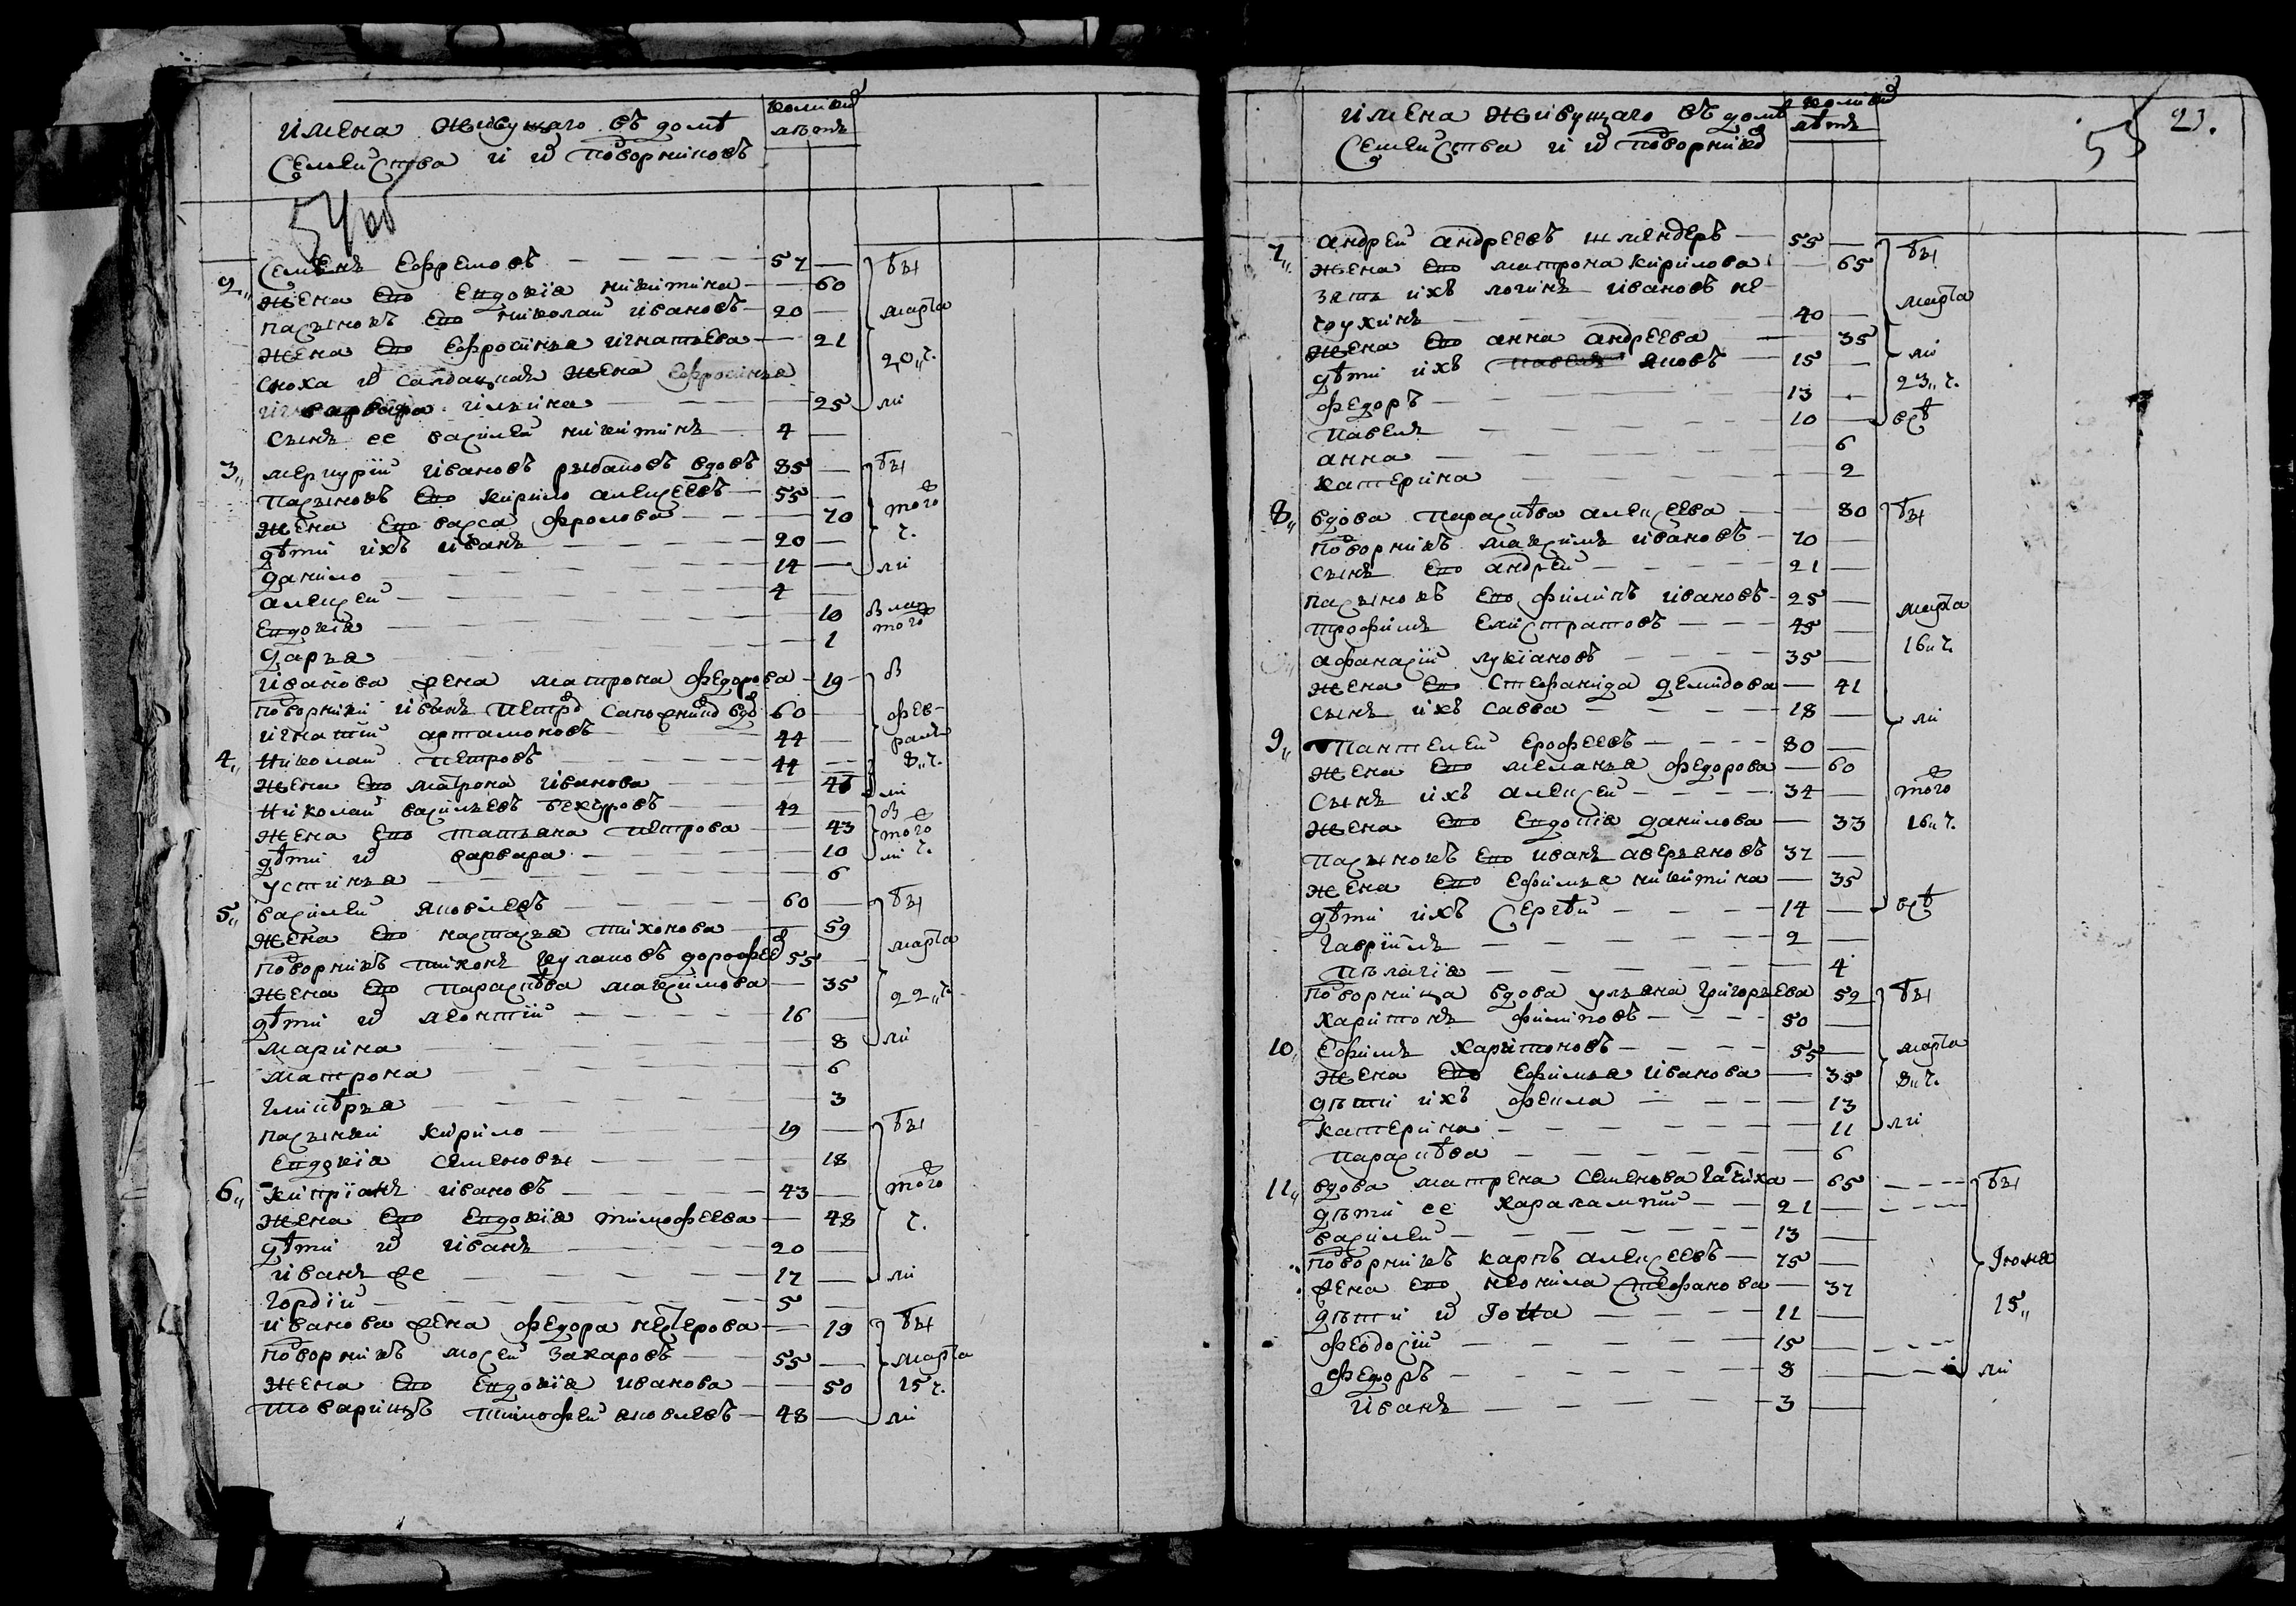 имена живущаго въ домѣ
коликихъ
лѣтъ
семейства и ихъ подворниковъ
54об
2,, Семенъ Ефремовъ 57 бы
жена Его Евдокія никитина 60
пасынокъ Его николай ивановъ 20 марта
жена Его Ефросинья игнатьева 21
20,, ч.
сноха ихъ салдацкая жена
варвара ильина 25 ли
сынъ ее василей никитинъ 4
3,, меркурій ивановъ рыбаковъ вдовъ 85 бы
пасынокъ Его кирило алексеевъ 55 того
жена Его васса фролова 70 ч.
дѣти ихъ иванъ 20
данило 14 ли
алексей 4
Евдокія 10 того
дарья 1
иванова жена матрона федорова 19 в
подворники иванъ петровъ вдовъ 60 фев-
игнатий артамоновъ 44 раля
4,, николай петровъ 44 8,, ч.
жена Его матрона иванова ли
николай васильевъ 42 в
жена Его татьяна петрова 43 того
дѣти ихъ варвара 10 ли ч.
устинья 6
5,, василей яковлевъ 60 бы
жена Его настасья тихонова 59
подворникъ тихонъ кулаковъ 55 марта
жена Его парасѣва максимова 35
22,, ч.
дѣти ихъ леонтій 16
марина 8 ли
матрона 6
гликѣрья 3
пасынки кирило 19 бы
Евдокія семеновы 18
6,, киприанъ ивановъ 43 того
жена Его Евдокія тимофеева 48 ч.
дѣти ихъ иванъ 20
иванъ же 17 ли
гордій 5
иванова жена федора нестерова 19 бы
подворникъ мосей захаровъ 55 марта
жена Его Евдокія иванова 50 15 ч.
товарищъ тимофей яковлевъ 48 ли
имена живущаго въ домѣ
коликихъ
лѣтъ
семейства и ихъ подворниковъ
53 23.
7,, андрей андреевъ шмендеръ 55 бы
жена Его матрона кирилова 65
зять ихъ логинъ ивановъ не- марта
чоухинъ 40
жена Его анна андреева 35 ли
дѣти ихъ яковъ 15
23,, ч.
федоръ 13
павелъ 10 всѣ
анна 6
катерина 2
8,, вдова парасѣва алексеева 80 бы
подворникъ максимъ ивановъ 70
сынъ Его андрей 21
пасынокъ Его филипъ ивановъ 25 марта
трофимъ Елистратовъ 45
афанасій лукіановъ 35 16,, ч.
жена Его стефанида демидова 41
сынъ ихъ савва 18 ли
9,, пантелей ерофеевъ 80
жена Его меланья федорова 60
сынъ ихъ алексей 34 того
жена Его Евдокія данилова 33 16,, ч.
пасынокъ Его иванъ аверьяновъ 37
жена Его Ефимья никитина 35
дѣти ихъ сергѣй 14 всѣ
гавріилъ 2
пелагія 4
подворница вдова ульяна григорьева 52 бы
харитонъ филиповъ 50
10,, Ефимъ харитоновъ 55 марта
жена Его Ефимья иванова 35 8,, ч.
дѣти ихъ фекла 13
катерина 11 ли
парасѣва 6
11,, вдова матрена семенова 65 бы
дѣти ее харалампий 21
василей 13
подворникъ карпъ алексеевъ 75
жена Его неонила стефанова 37 Іюня
дѣти ихъ Іона 11 15,,
феодосій 15
федоръ 8 ли
иванъ 3